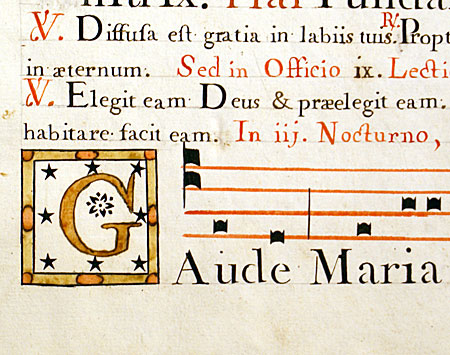 ℣. Diffusa est gratia in labiis tuis. ℟. Propt
in æternum. Sed in Officio ix. Lecti
℣. Elegit eam Deus & præelegit eam.
habitare facit eam. In iij. Nocturno,
GAude Maria